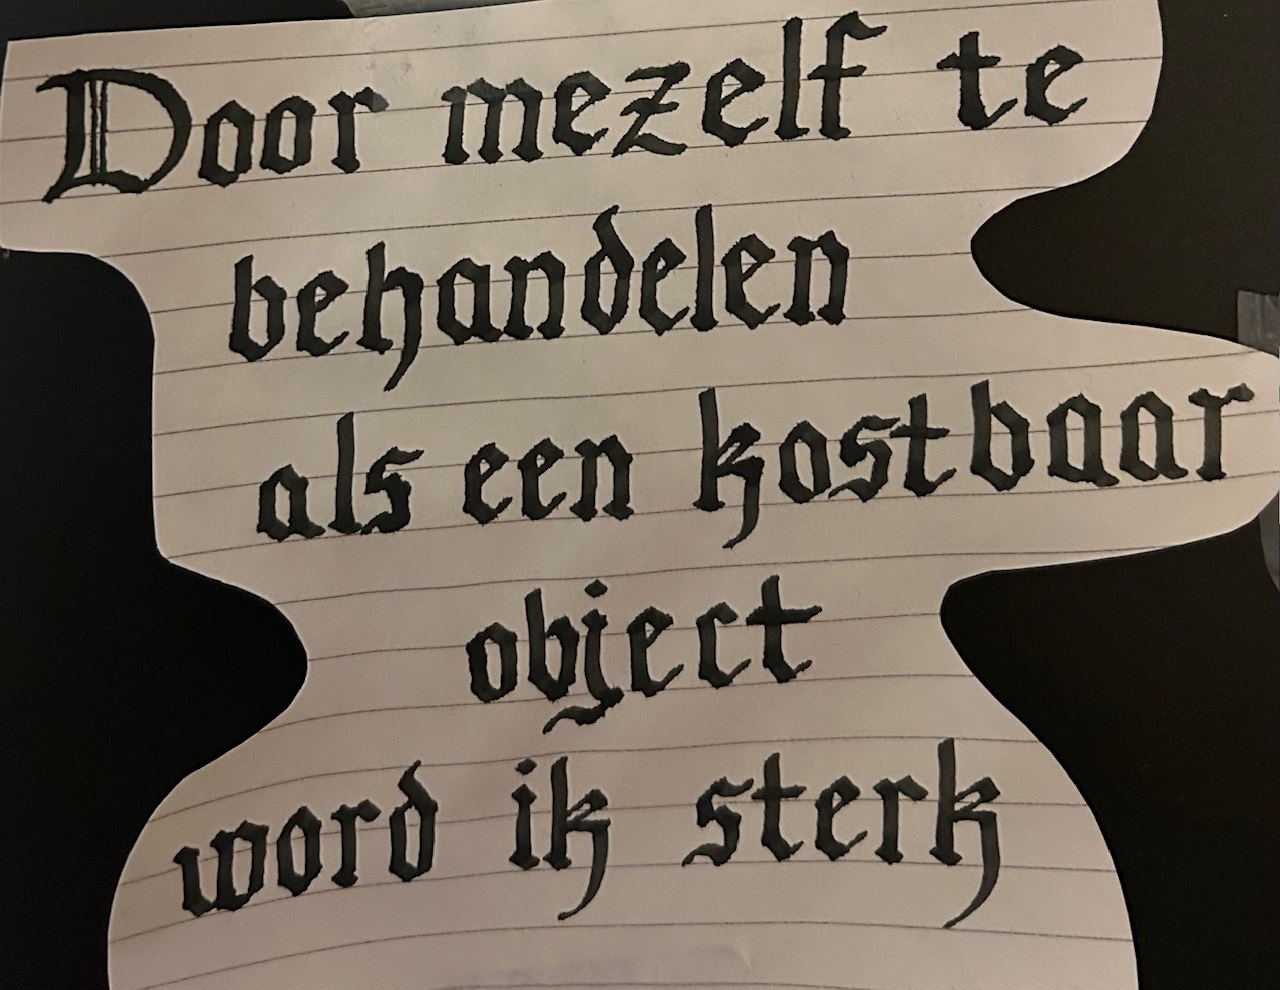 Door mezelf te
behandelen
als een kostbaar
object
word ik sterk